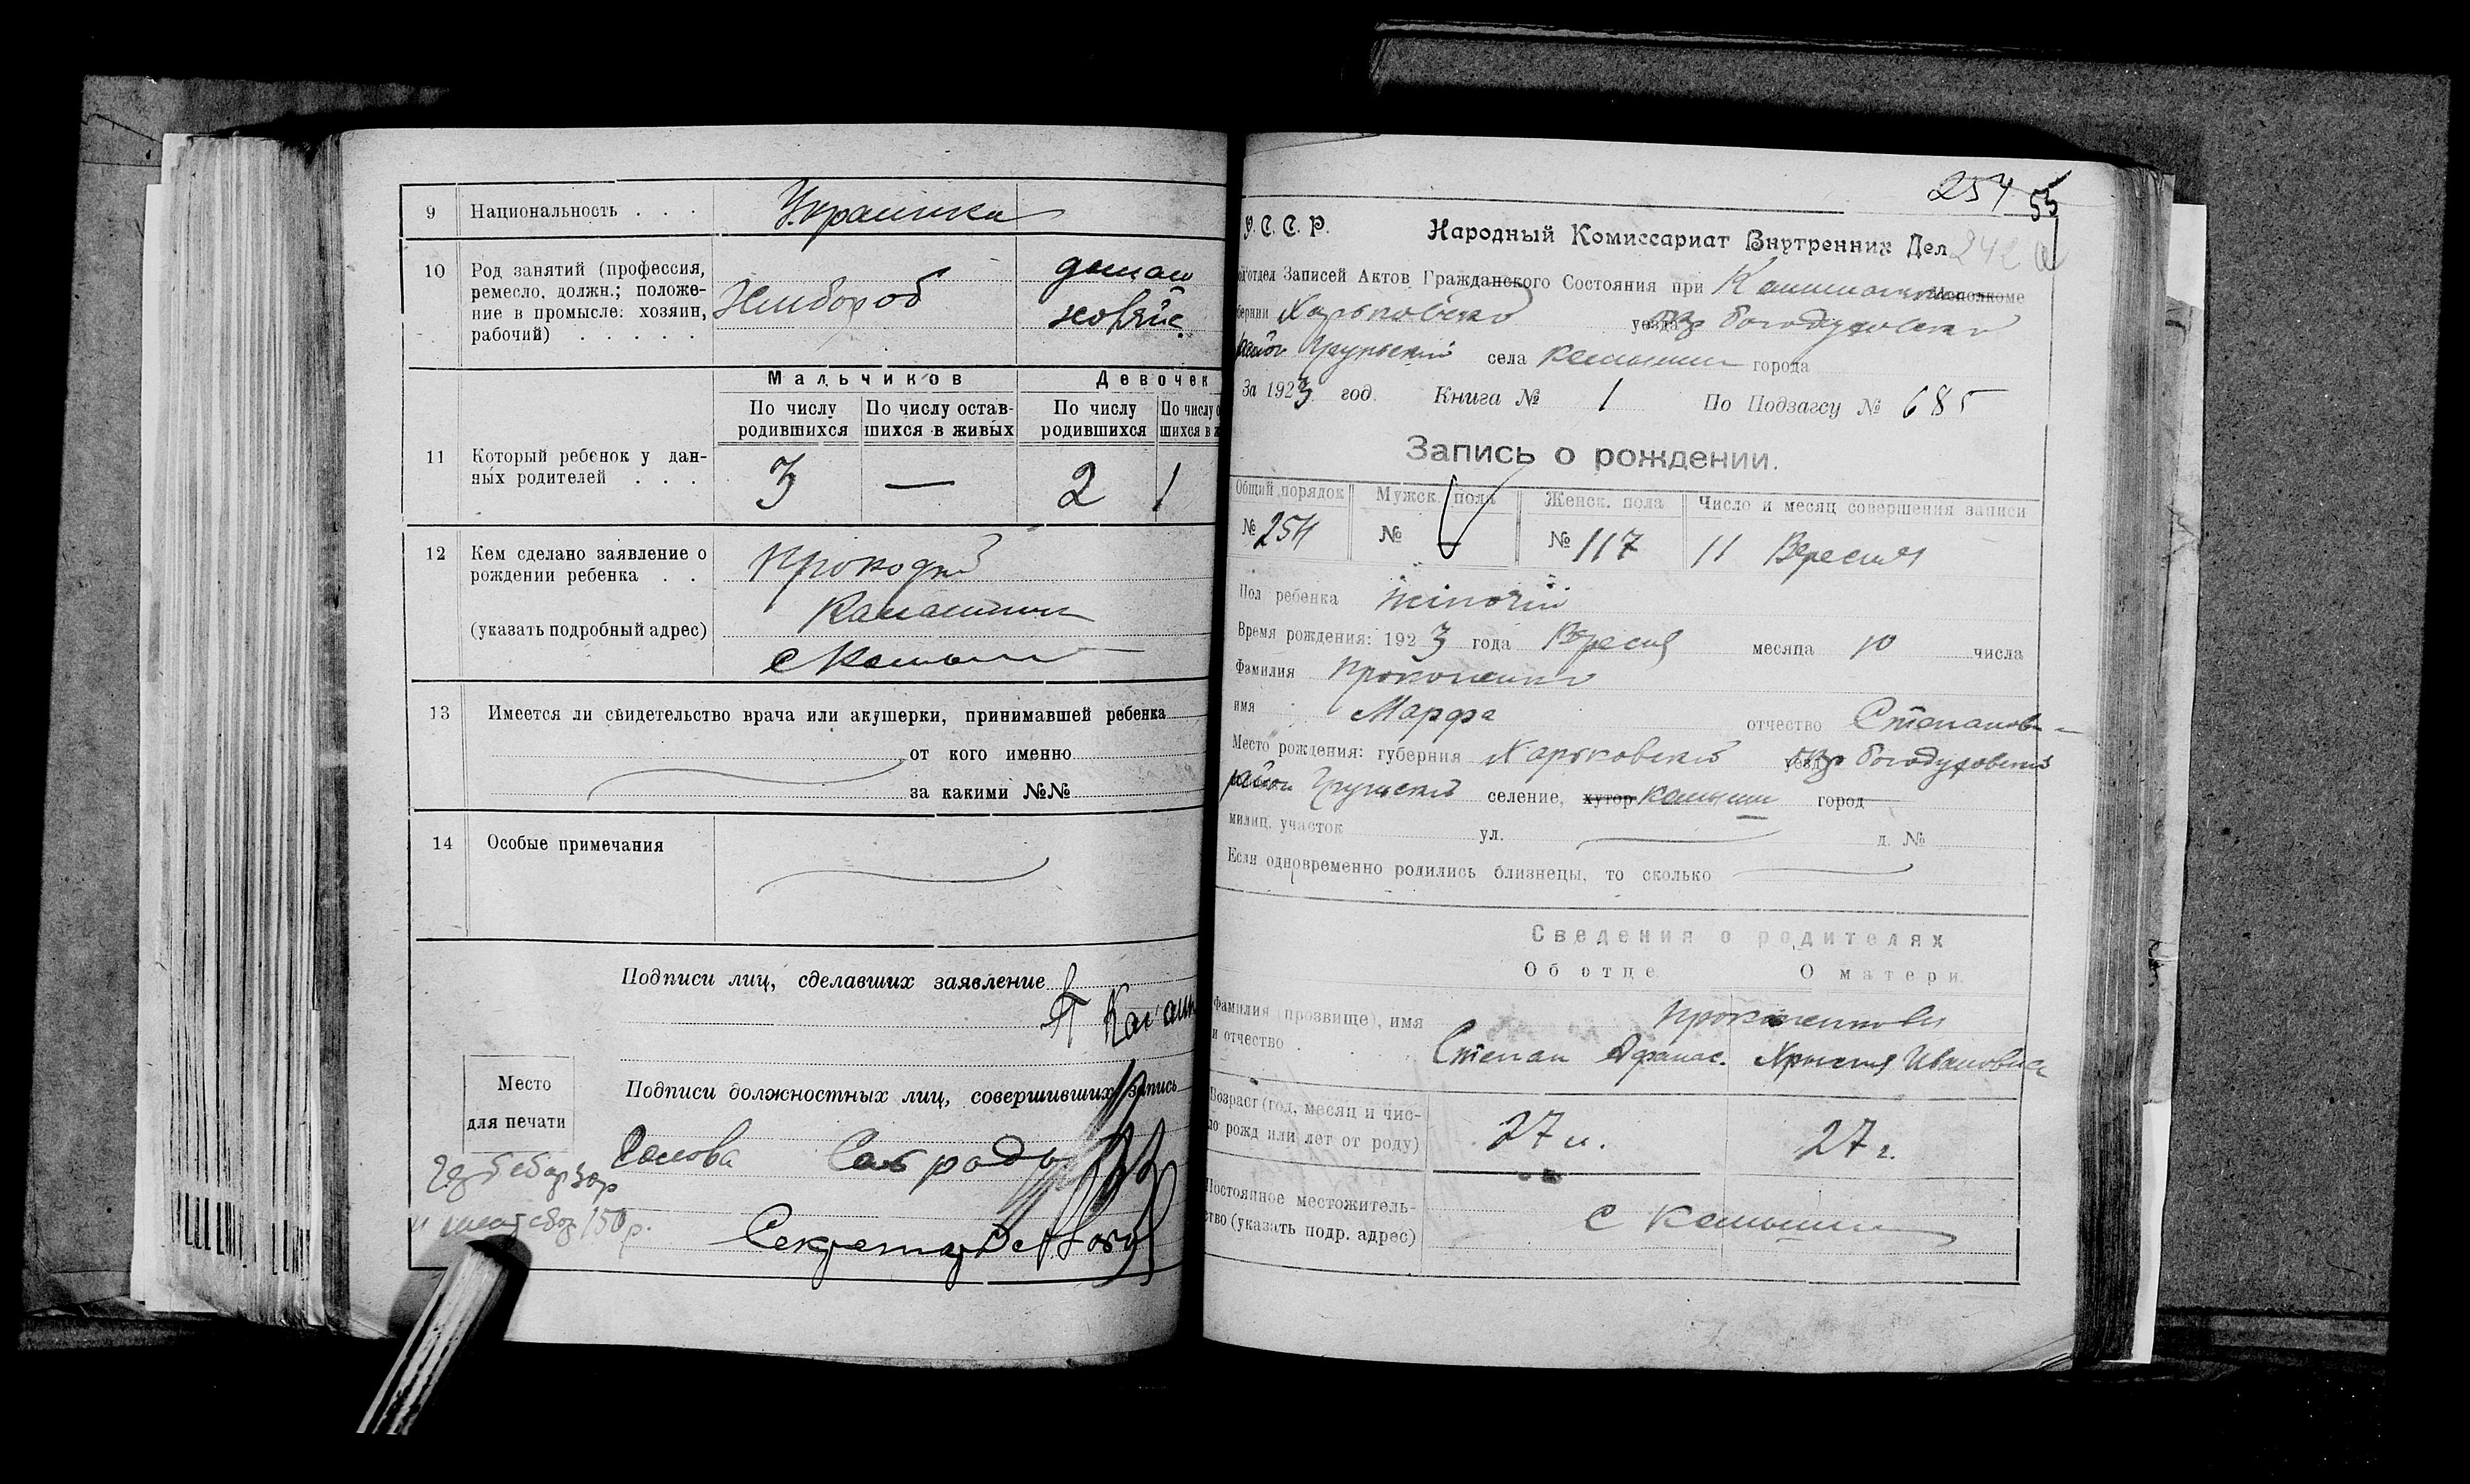 9 Национальность . . . Украинка
10 Род занятий (профессия,
ремесло, должн.; положе-
ние в промысле: хозяин,
рабочий) . . . . .
Хлибороб
домаш
хозяйс.
Мальчиков Девочек
По числу родившихся
По числу остав-
шихся в живых
По числу родившихся
11 Который ребенок у дан-
ных родителей . . .
3 — 2 1
12 Кем сделано заявление о
рождении ребенка . .
(указать подробный адрес)
13 Имеется ли свидетельство врача или акушерки, принимавшей ребенка
от кого именно
за какими №№
14 Особые примечания
Подписи лиц, сделавших заявление
Место
для печати
Подписи должностных лиц, совершивших запись
Голова
Секретарь
150 р.
254 55
У. С. С. Р. Народный Комиссариат Внутренних Дел 242
отдел Записей Актов Гражданского Состояния при Исполкоме
Харьковской уезда Богодуховской
район села Камыши города
За 1923 год. Книга № 1 По Подзагсу № 685
Запись о рождении.
Общий порядок Мужск. пола Женск. пола Число и месяц совершения записи
№ 254 № — № 117 11 Вересня
Пол ребенка жіночій
Время рождения: 1923 года Вересня месяца 10 числа
Фамилия Прокопенко
имя Марфа отчество Степанов
Место рождения: губерния Харьковской уезд Богодуховский
район селение, хутор Камыши город
милиц. участок ул. д. №
Если одновременно родились близнецы, то сколько
Сведения о родителях
Об отце О матери
Фамилия (прозвище), имя
и отчество .
Прокопенкови
Степан Афанас. Ивановна
Возраст (год, месяц и чис-
ло рожд или лет от роду)
27 27 г.
Постоянное местожитель-
ство (указать подр. адрес)
С Камыши